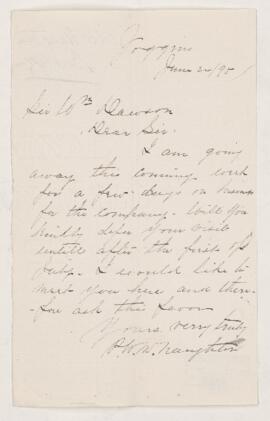 Joggins
June 22/95
Sir Wm Dawson
Dear Sir.
I am going
away this coming week
for a few days on business
for the company. Will you
kindly defer your visit
untill after the first of
July. I would like to
meet you here and there-
-fore ask this favor
Yours very truly
R W McNaughton